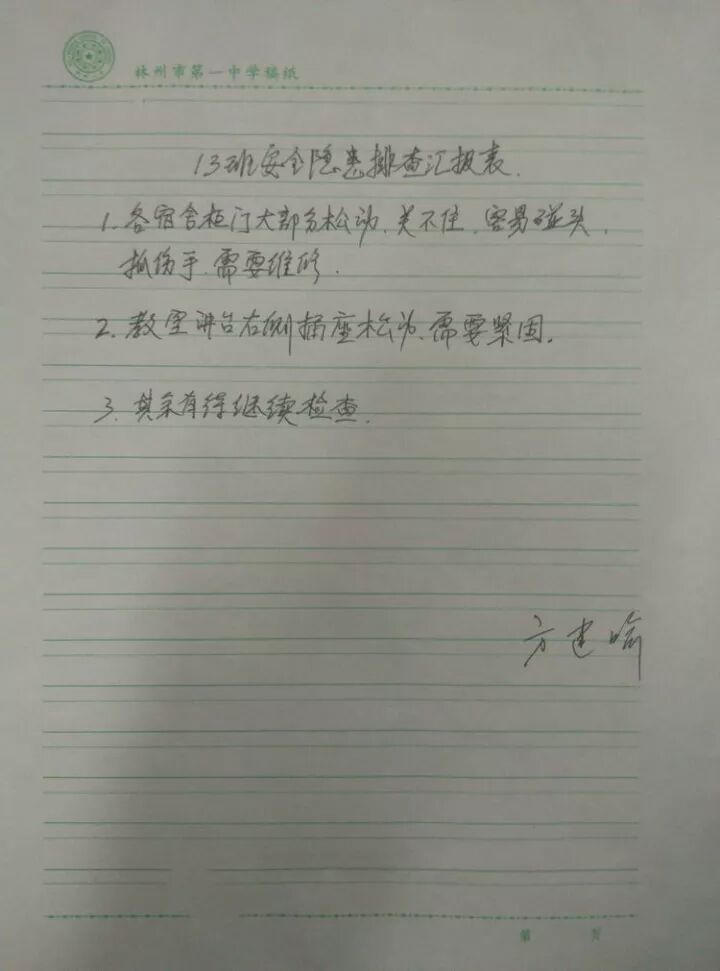 林州市第一中学稿纸
13班安全隐患排查汇报表.
1. 各宿舍柜门大部分松动、关不住、容易碰头、
抓伤手、需要维修.
2. 教室讲台右侧插座松动、需要紧固.
3. 其余有待继续检查.
方建
第 页